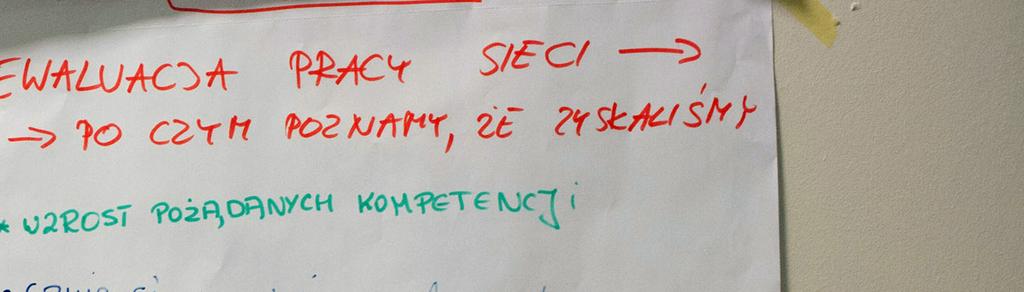 EWALUACJA PRACY SIECI →
→ PO CZYM POZNAMY, ŻE ZYSKALIŚMY
* WZROST POŻĄDANYCH KOMPETENCJi